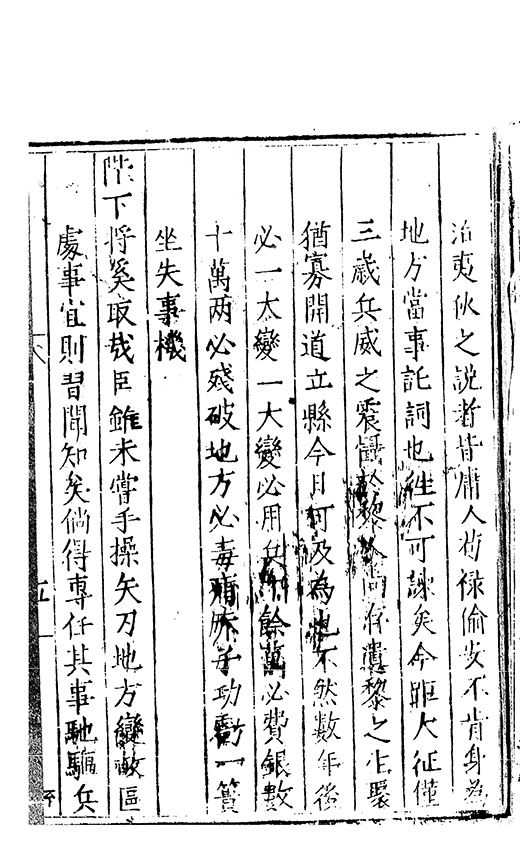 治夷伙之說者皆庸人茍祿偷安不肯身為
地方當事託詞也徃不可諫矣今距大征僅
三歲兵威之震黎尚存遺黎之生聚
猶寡開道立縣今日可及為也不然數年後
必一大變一大變必用兵餘萬必費銀數
十萬兩必殘破地方必毒痡赤子功虧一簣
坐失事機
陛下將奚取哉臣雖未嘗手操矢刃地方變故區
處事宜則習聞知矣倘得專任其事馳驅兵